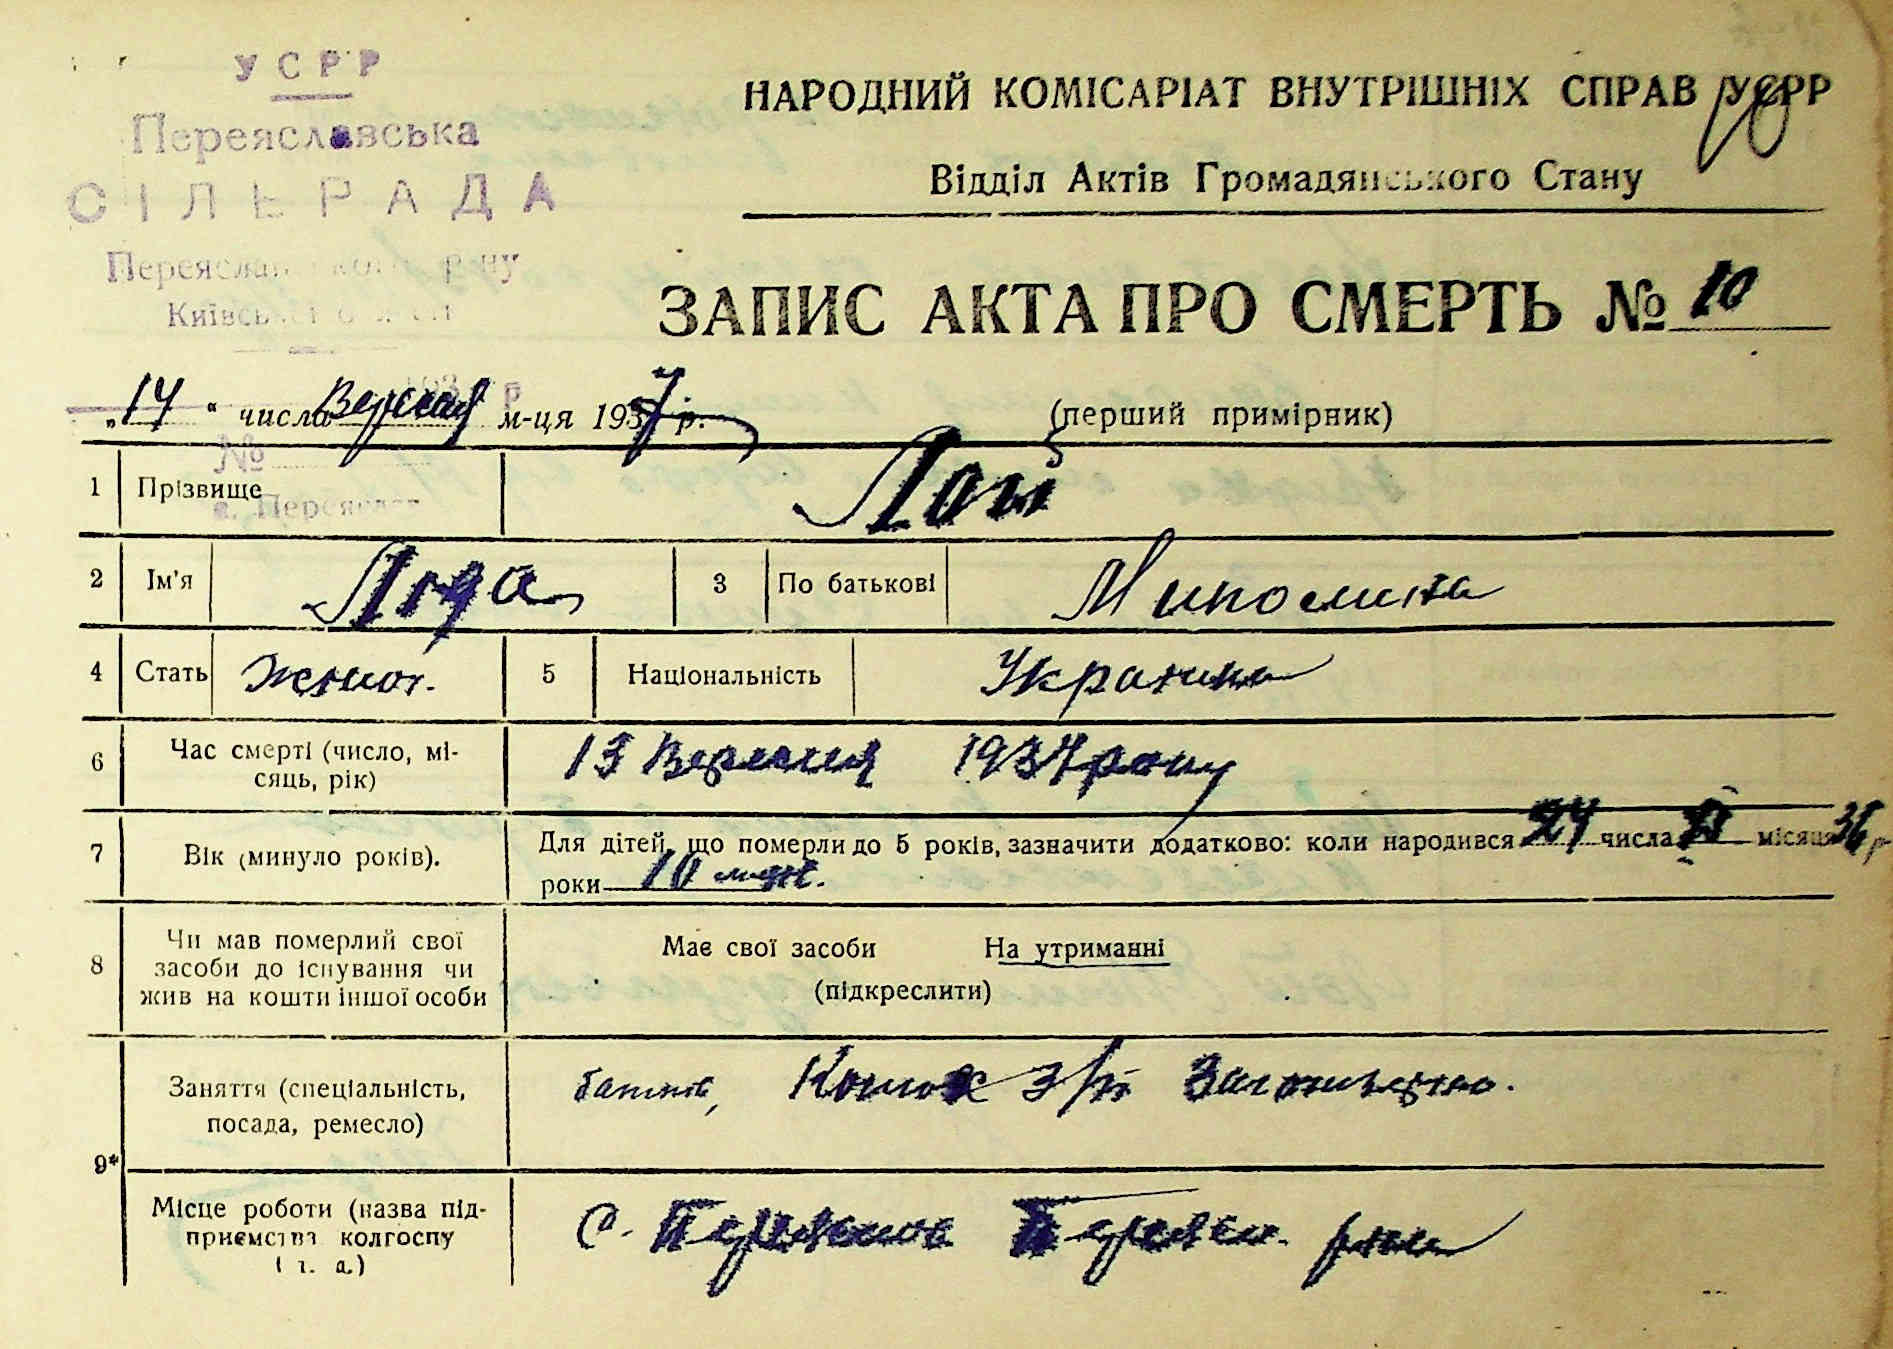 УСРР
Переяславська
СІЛЬРАДА
Переяславського р-ну
Київської області
НАРОДНИЙ КОМІСАРІАТ ВНУТРІШНІХ СПРАВ УСРР
Відділ Актів Громадянського Стану
ЗАПИС АКТА ПРО СМЕРТЬ № 10
„14“ числа Вересня м-ця 1937 р.
(перший примірник)
№
с. Переяслав
1 Прізвище
2 Ім'я Ліда 3 По батькові
4 Стать жіноч. 5 Національність Українка
6 Час смерті (число, мі-
сяць, рік)
13 Вересня 1937 року
7 Вік (минуло років).
Для дітей, що померли до 5 років, зазначити додатково: коли народився 24 числа XI місяця 36 р
роки 10 міс.
8 Чи мав померлий свої
засоби до існування чи
жив на кошти іншої особи
Має свої засоби На утриманні
(підкреслити)
9*
Заняття (спеціальність,
посада, ремесло)
батько, Конюх
Місце роботи (назва під-
приємства колгоспу
і т. д.)
С. Переяслов Переясл. району